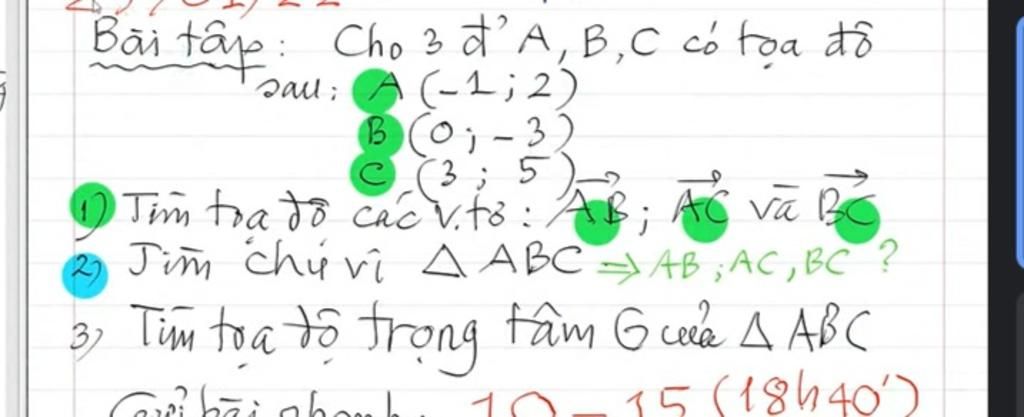 Bài tập: Cho 3 đ' A, B, C có tọa độ
sau: A (-1; 2)
B (0; -3)
C (3; 5)
1) Tìm tọa độ các v.tơ: AB; AC và BC
2) Tìm chu vi △ ABC => AB; AC, BC ?
3) Tìm tọa độ trọng tâm G của △ ABC
10 - 15 (18h40')